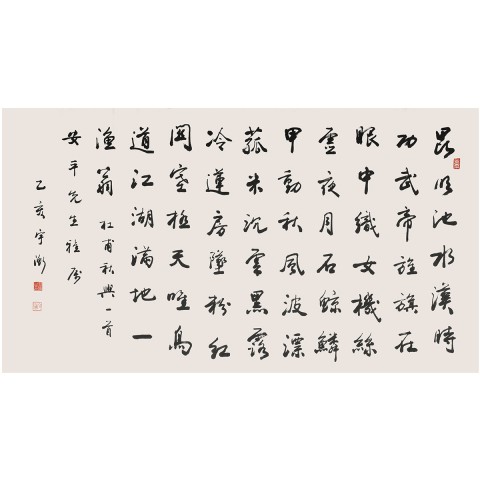 昆明池水漢時
功武帝旌旗在
眼中織女機絲
虛夜月石鯨鱗
甲動秋風波漂
菰米沉雲黑露
冷蓮房墜粉紅
關塞極天唯鳥
道江湖滿地一
漁翁 杜甫秋興一首
安平先生雅属
乙亥宇